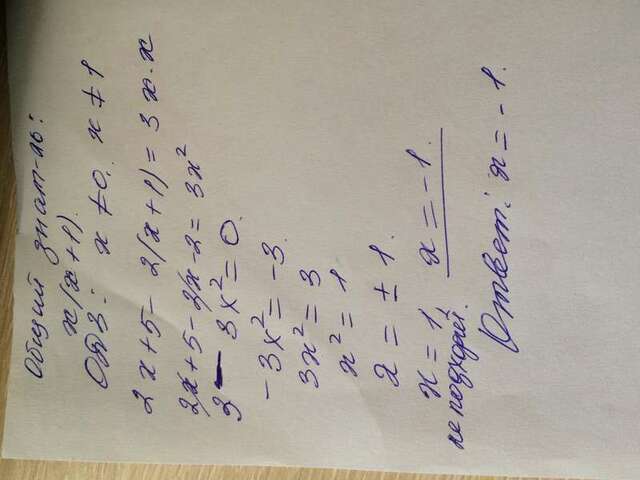 Общий знам-ль:
x(x+1).
ОДЗ: x ≠ 0, x ≠ 1
2x+5- 2(x+1) = 3x·x
2x+5-2x-2= 3x²
3 - 3x² = 0.
-3x² = -3.
3x² = 3
x² = 1
x = ± 1.
x = 1, x = -1.
не подходит.
Ответ: x = -1.